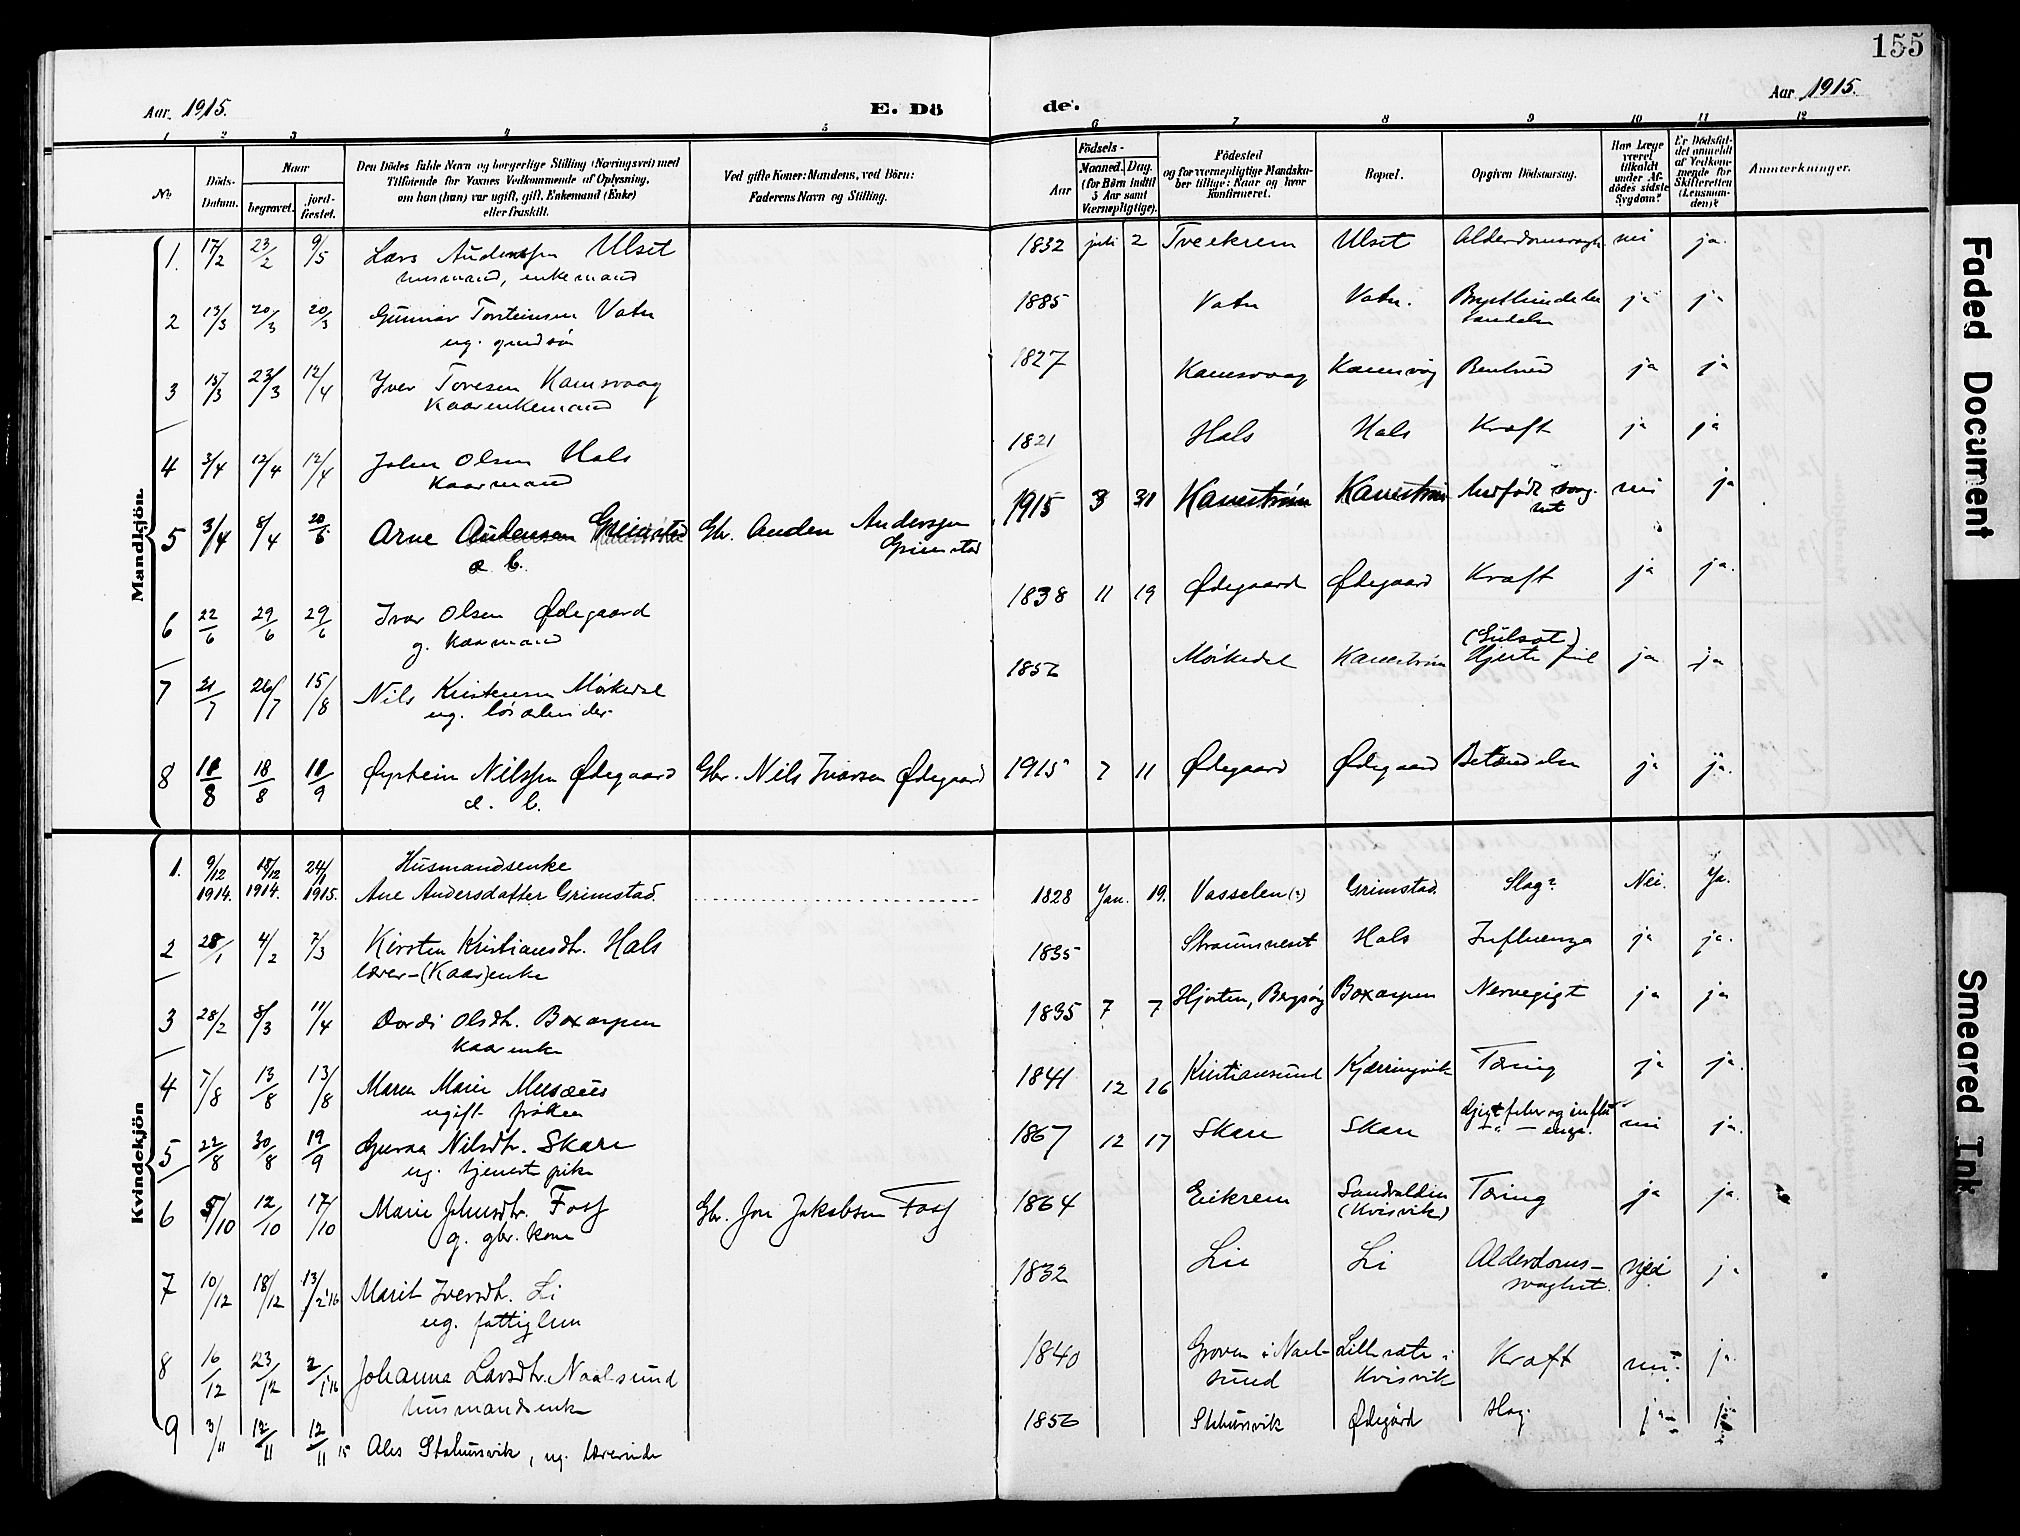 155
Aar 1915. E. Dö de. Aar 1915.
1 2 3 4 5 6 7 8 9 10 11 12
No Döds-Datum. Naar begravet. jord-fæstet. Den Dödes fulde Navn og borgerlige Stilling (Næringsvei) med Tilföiende for Voxnes Vedkommende af Oplysning, om hun (han) var ugift, gift, Enkemand (Enke) eller fraskilt. Ved gifte Koner: Mandens, ved Börn: Faderens Navn og Stilling. Födsels- Aar Maaned. Dag. (for Börn indtil 5 Aar samt Værnepligtige). Födested og for værnepligtige Mandskaber tillige: Naar og hvor konfirmeret. Bopæl. Opgiven Dödsaarsag. Har Læge været tilkaldt under Afdödes sidste Sygdom? Er Dödsfaldet anmeldt af Vedkommende for Skifteretten (Lensmanden)? Anmærkninger.
Mandkjön.
1. 17/2 23/2 9/5 Lars Anderssen Ulset 1832 juli 2 Tveekrem Ulset nei ja.
husmand, enkemand
2 13/3 20/3 20/3 Gunnar Torsteinsen Vatn 1885 Vatn Vatn. ja ja
ug. grdsön
3 15/3 23/3 12/4 Iver Toresen Kamsvaag 1827 Kamsvaag Kamsvåg ja ja
Kaarenkemand
4 3/4 12/4 12/4 John Olsen Hals 1821 Hals Hals Kraft ja ja
Kaarmand
5 3/4 8/4 20/6 Arne Audensen Grimstad Gbr. Auden Anderssen Grimstad 1915 3 31 Kanestrøm Kanestrøm Medfødt svag- nei ja
æ b. het
6 22/6 29/6 29/6 Ivar Olsen Ødegaard 1838 11 19 Ødegaard Ødegaard Kraft ja ja.
g. Kaarmand
7 21/7 26/7 15/8 Nils Kristensen Mörkedal 1856 Mörkedal Kanestrøm (Gulsot) Hjertefeil ja ja
ug. lösarbeider
8 11/8 18/8 11/9 Øystein Nilssen Ødegaard Gbr. Nils Ivarsen Ødegaard 1915 7 11 Ødegaard Ødegaard Betændelse ja ja.
æ. b.
Kvindekjön
1. 9/12 1914. 18/12 1914. 24/1 1915. Husmandsenke
Ane Andersdatter Grimstad. 1828 Jan. 19. Vasselen (?) Grimstad. Slag? Nei. Ja.
2 28/1 4/2 7/3 Kirsten Kristiansdtr. Hals 1835 Straumsneset Hals Influenza ja ja.
lærer-(Kaar)enke
3 28/2 8/3 11/4 Dordi Olsdtr. Boxaspen 1835 7 7 Hjorten, Bergsöy Boxaspen Nervegigt ja ja
Kaarenke
4 7/8 13/8 13/8 Maren Marie Musæus 1841 12 16 Kristiansund Kjærringvik Tæring ja ja.
ugift fröken
5 22/8 30/8 19/9 Guroa Nilsdtr. Skare 1867 12 17 Skare Skare Gigtfeber og influ- nei ja.
ug. tjenestpike enza.
6 5/10 12/10 17/10 Marie Johnsdtr. Foss Gbr. Jon Jakobsen Foss 1864 Eikrem Sandvalden (Kvisvik) Tæring ja ja.
g. gbr. kone
7 10/12 18/12 13/2 '16 Marit Iversdtr. Li 1832 Lie Li Alderdoms- nei ja
ug. fattiglem svaghet.
8 16/12 23/12 2/1 '16 Johanna Larsdtr. Naalsund 1840 Groven i Naal-sund Lillesæte i Kvisvik Kraft nei. ja.
husmandsenke
9 3/11 12/11 12/11 15 Ales Stokursvik, ug. lærerinde 1856 Stokursvik Ødegård Slag. ja ja
Faded Document
Smeared Ink